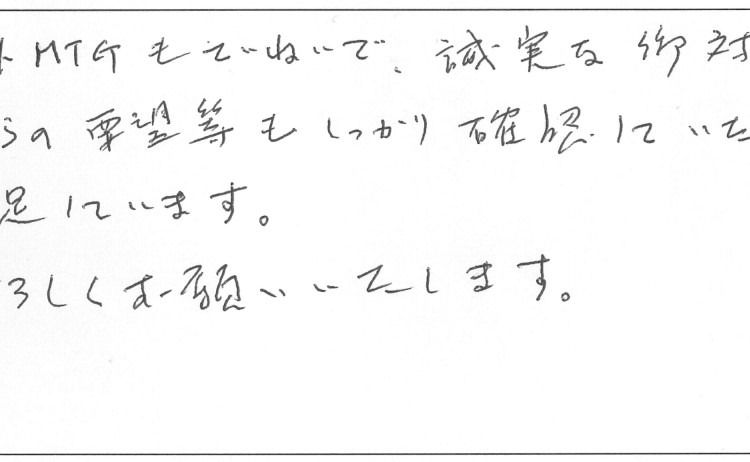 MTGもていねいで、誠実な御対
らの要望等もしっかり確認していた
足しています。
ろしくお願いいたします。